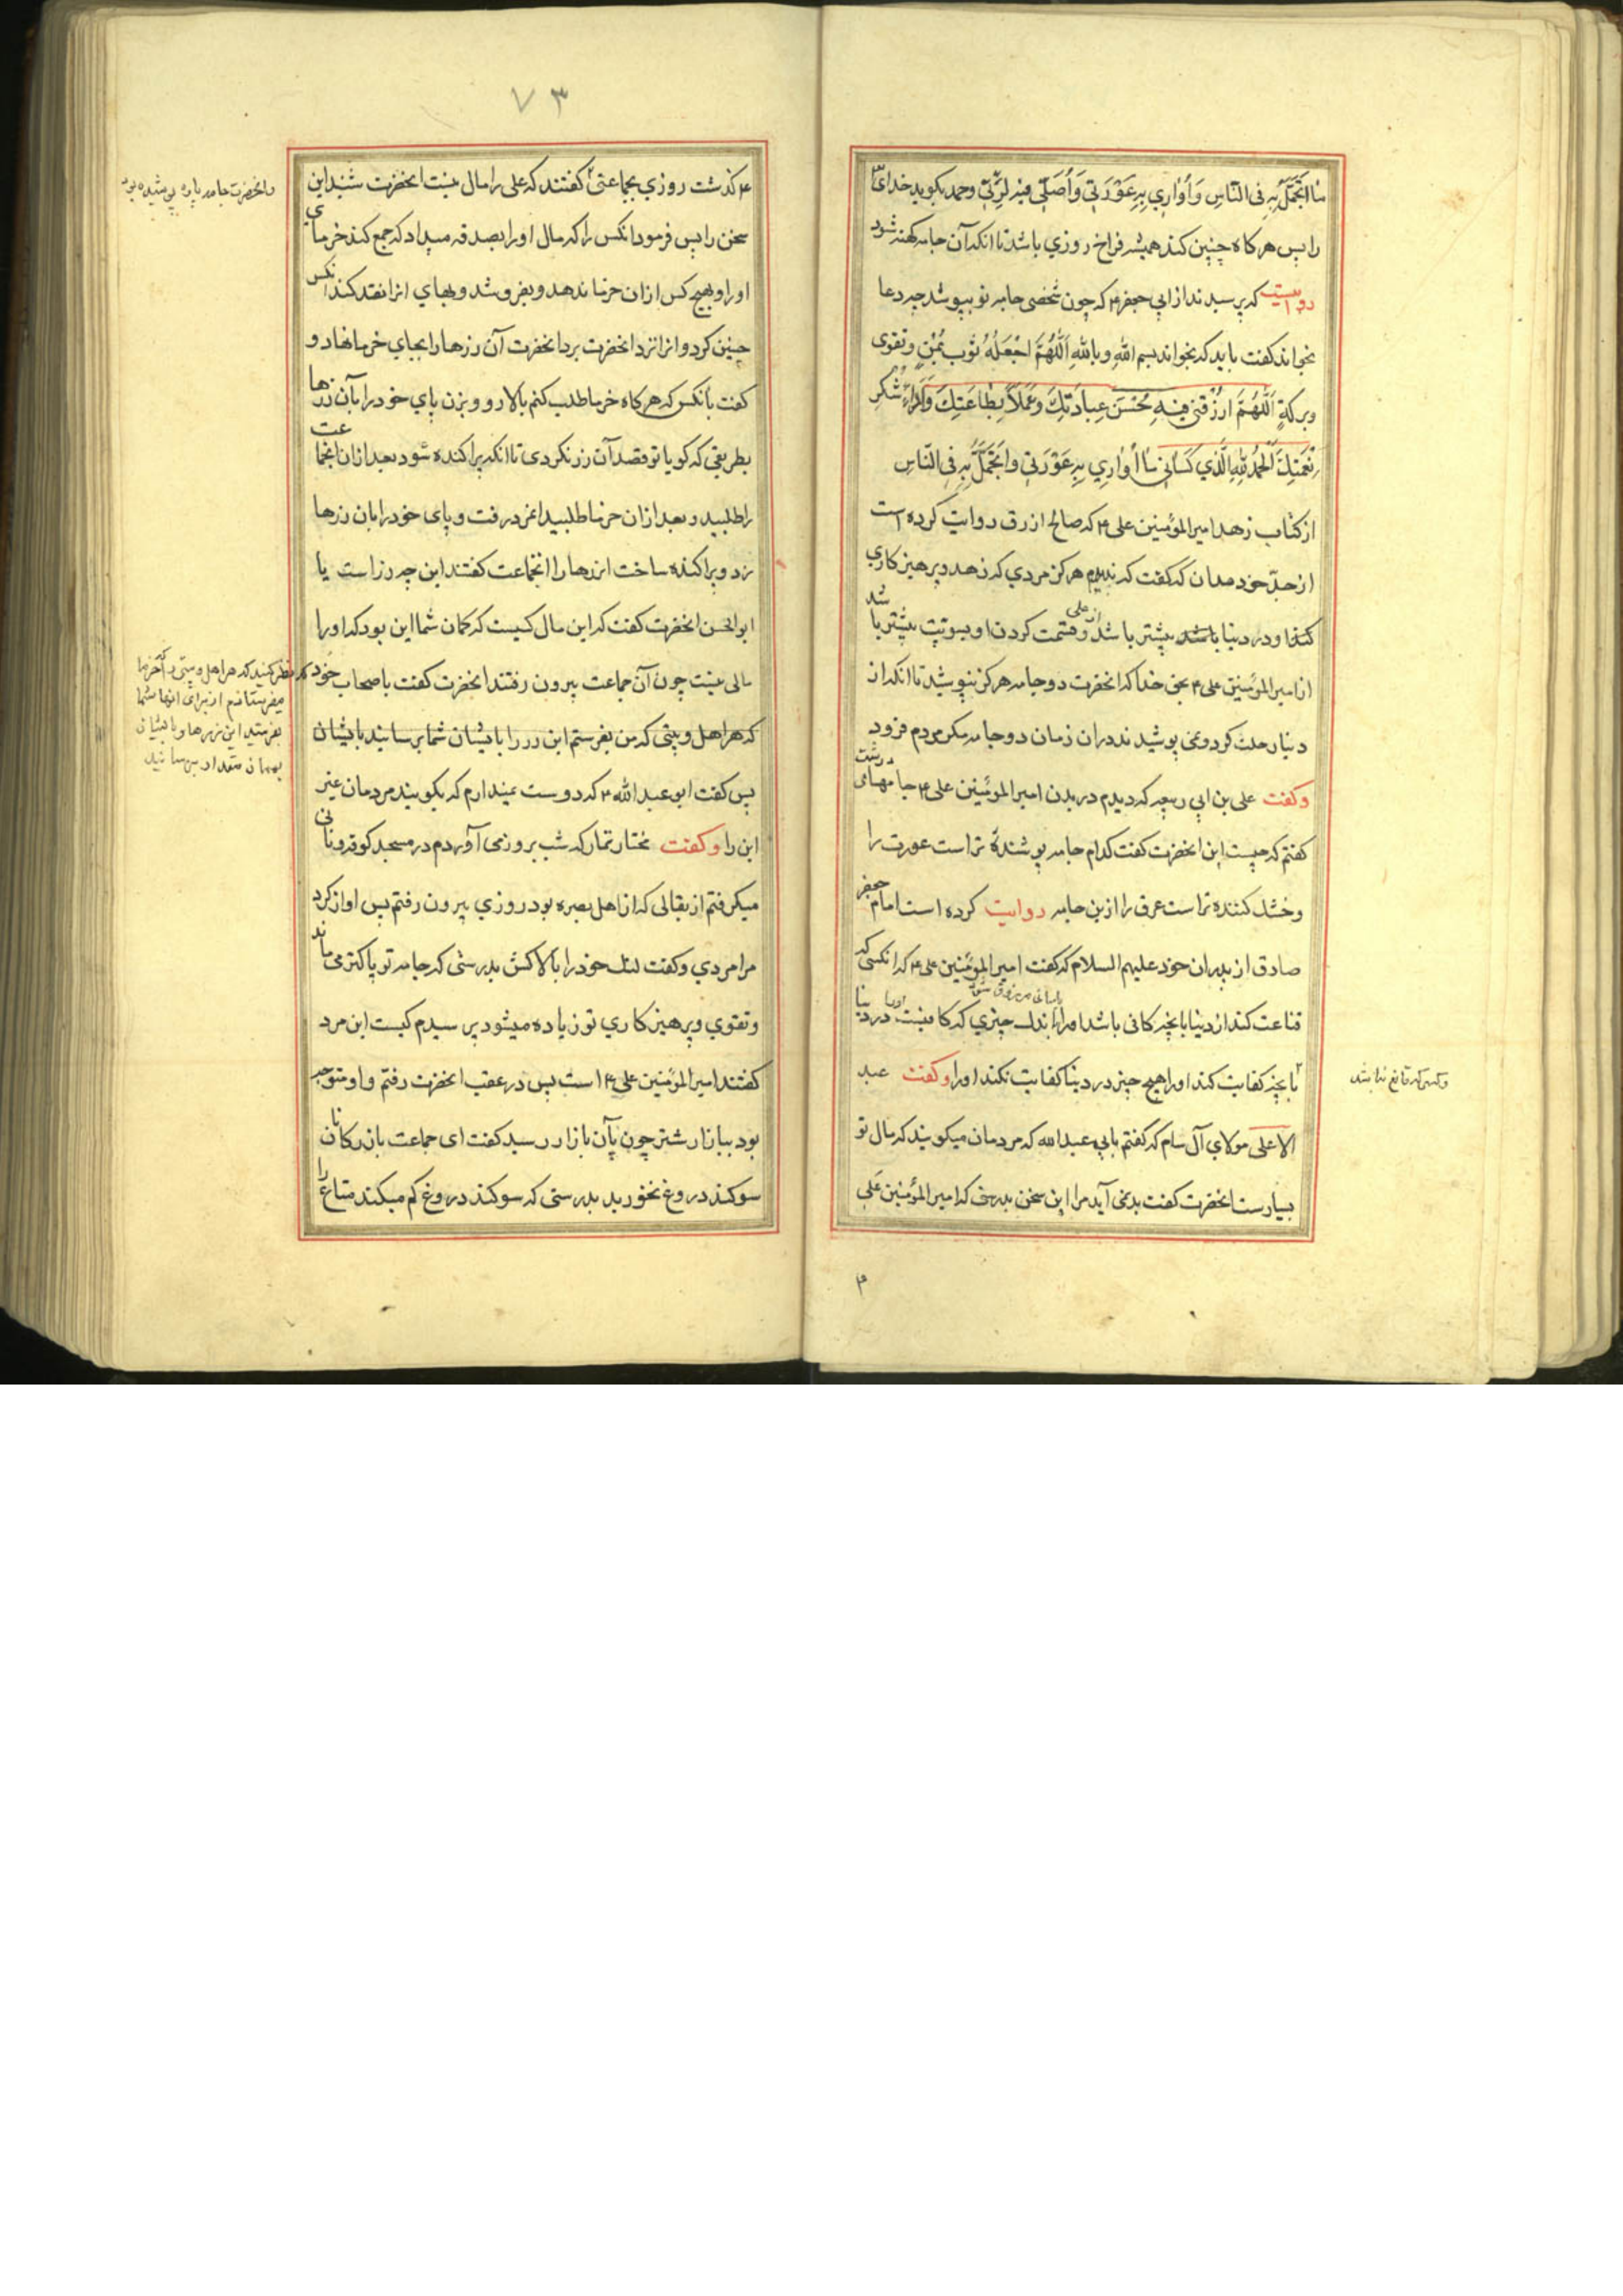 ما اتجمل به فی الناس و اواری به عورتی و اصلی فیه لربی و حمد بکوید خدای
را پس هر کاه چنین کند همیشه فراخ روزی باشد تا انکه آن جامه کهنه شود
روایت که پرسیدند از ابی جعفر ۴ که چون شخصی جامه نو بپوشد چه دعا
بخواند کفت باید که بخواند بسم الله و بالله اَللّهُمَّ اجْعَلْهُ ثوب یُمْنٍ و تقوی
و برکةٍ اَللّهُمَّ ارْزُقنی فیهِ حُسْنَ عِبادَتِكَ وَ عَمَلاً بِطاعَتِكَ وَ اَداءَ شکرِ
نِعْمَتِكَ اَلْحَمْدُ لِلّهِ الَّذی کَسانی ما اُواری بِهِ عَوْرَتی و اَتَجَمَّلُ بِه فِی النّاس
از کتاب زهد امیر المؤمنین علی ۴ که صالح ازرق روایت کرده است
از جدّ خود مدان که کفت که ندیدم هرکز مردی که زهد و پرهیز کاری
کند او در دنیا باشد بیشتر باشد از علی و قسمت کردن او بسویت بیشتر باشد
از امیر المؤمنین علی ۴ بحق خدا که انحضرت دو جامه هرکز نپوشید تا انکه از
دنیا رحلت کرد و نمی پوشیدند دران زمان دو جامه مکر مردم فزود
وکفت علی بن ابی ربیعه که دیدم در بدن امیر المؤمنین علی ۴ جامهای درشت
کفتم که چیست این انحضرت کفت کدام جامه پوشندۀ تر است عورت را
و خشک کننده تر است عرق را ازین جامه روایت کرده است امام جعفر
صادق از پدران خود علیهم السلام که کفت امیر المؤمنین علی ۴ که انکسی که
قناعت کند از دنیا بانچه کافی باشد او را باندك چیزی که کافیست در دنیا
بانچه کفایت کند او را هیچ چیز در دنیا کفایت نکند او را وکفت عبد
وکسی که قانع نباشد
الاعلی مولای آل سام که کفتم بابی عبد الله که مردمان میکویند که مال تو
بسیارست انحضرت کفت بدنمی آید مرا این سخن بدرستی که امیر المؤمنین علی
۴
۷۳
۴ کذشت روزی بجماعتی کفتند که علی را مال نیست انحضرت شنید این
وانحضرت جامه پاره پوشیده بود
سخن را پس فرمود انکس را که مال او را بصدقه میداد که جمع کند خرمای
او را و بهیچ کس ازان خرما ندهد و بفروشد و بهای انرا نقد کند انکس
چنین کرد و انرا نزد انحضرت برد انحضرت آن زرها را بجای خرما نهاد و
کفت بانکس که هر کاه خرما طلب کنم بالا رو و بزن پای خود را بآن زرها
بطریقی که کویا تو قصد آن زر نکردی تا انکه پراکنده شود بعد ازان انجماعت
را طلبید و بعد ازان خرما طلبید انمرد رفت و پای خود را بان زرها
زد و پراکنده ساخت انزرها را انجماعت کفتند این چه زر است یا
ابو الحسن انحضرت کفت که این مال کسیست که کمان شما این بود که او را
مالی نیست چون آن جماعت بیرون رفتند انحضرت کفت باصحاب خود که
نظر کنید که هر اهل و بیتی که خرما
میفرستادم از برای انها شما
بفرستید این زرها و بایشان
بهمان مقدار برسانید
که هر اهل و بیتی که من بفرستم این زر را بایشان شما برسانید بایشان
پس کفت ابو عبد الله ۴ که دوست نمیدارم که بکویند مردمان غیر
این را وکفت مختار تمار که شب بروز می آوردم در مسجد کوفه و نانی
میکرفتم از بقالی که از اهل بصره بود روزی بیرون رفتم پس اواز کرد
مرا مردی و کفت لنك خود را بالا کش بدرستی که جامه تو پاکتر می ماند
و تقوی و پرهیز کاری تو زیاده میشود پرسیدم کیست این مرد
کفتند امیر المؤمنین علی ۴ است پس در عقب انحضرت رفتم و او متوجه
بود ببازار شتر چون بآن بازار رسید کفت ای جماعت بازرکانان
سوکند دروغ نخورید بدرستی که سوکند دروغ کم میکند متاع را